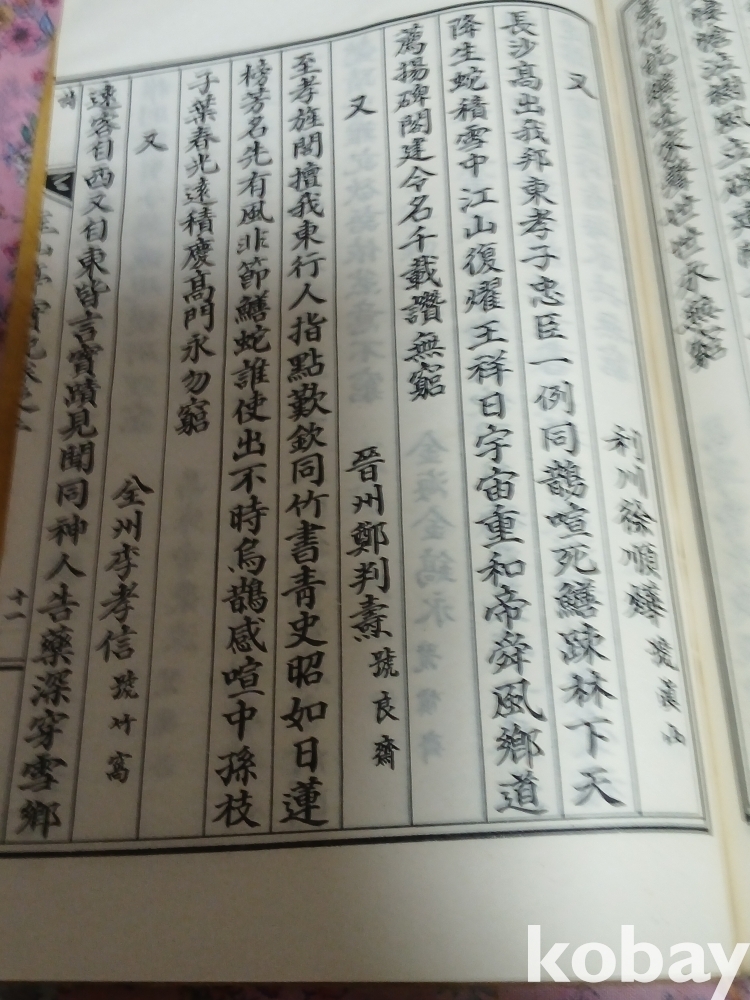 又
利川徐順
長沙髙出我邦東孝子忠臣一例同鵲喧死鱔踈林下天
降生蛇積雪中江山復燿王祥日宇宙重和帝舜風鄉道
薦揚碑閣建令名千載讚無窮
又
晉州鄭判壽 號良齋
至孝旌閭擅我東行人指點歎欽同竹書靑史昭如日蓮
榜芳名先有風非節鱔蛇誰使出不時烏鵲感喧中孫枝
子葉春光遠積慶髙門永勿窮
又
全州李孝信 號竹窩
遠客自西又自東皆言實蹟見聞同神人告藥深穿雪鄉
十一
kobay